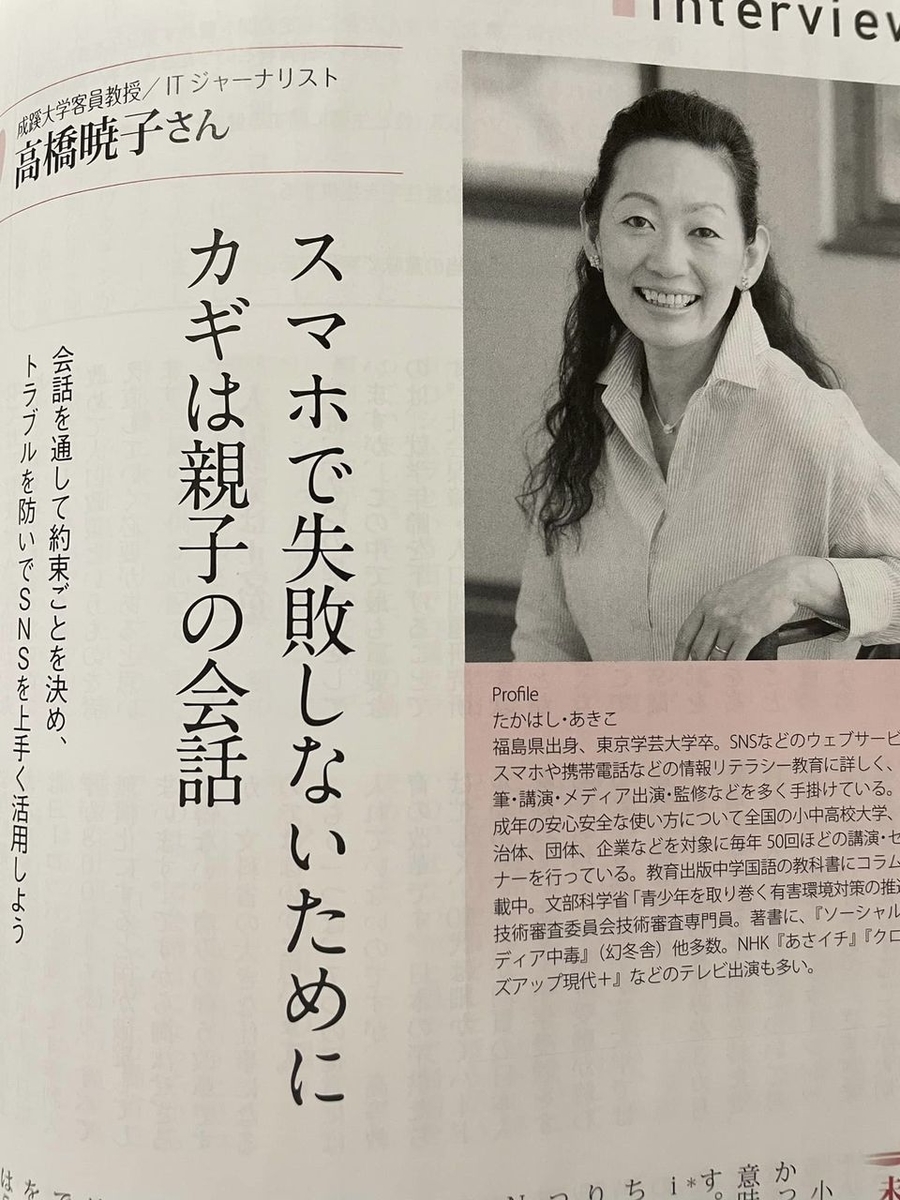 Interview
成蹊大学客員教授／ITジャーナリスト
高橋暁子さん
スマホで失敗しないために
カギは親子の会話
会話を通して約束ごとを決め、
トラブルを防いでSNSを上手く活用しよう
Profile
たかはし・あきこ
福島県出身、東京学芸大学卒。SNSなどのウェブサービ
スマホや携帯電話などの情報リテラシー教育に詳しく、
筆・講演・メディア出演・監修などを多く手掛けている。
成年の安心安全な使い方について全国の小中高校大学、
治体、団体、企業などを対象に毎年 50回ほどの講演・セ
ナーを行っている。教育出版中学国語の教科書にコラム
載中。文部科学省「青少年を取り巻く有害環境対策の推進
技術審査委員会技術審査専門員。著書に、『ソーシャル
ディア中毒』（幻冬舎）他多数。NHK『あさイチ』『クロ
ズアップ現代＋』などのテレビ出演も多い。